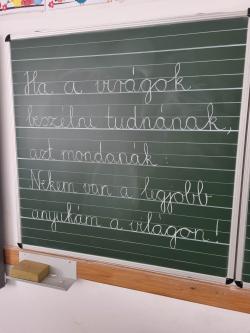 Ha a virágok
beszélni tudnának,
azt mondanák:
Nekem van a legjobb
anyukám a világon!